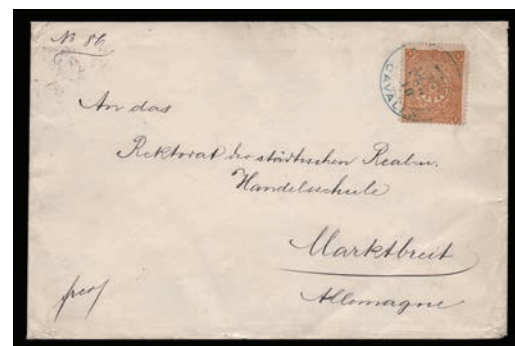 No 86
CAVALLE
An das
Rektorat der städtischen Realen.
Handelsschule
Marktbreit
Allemagne
frco